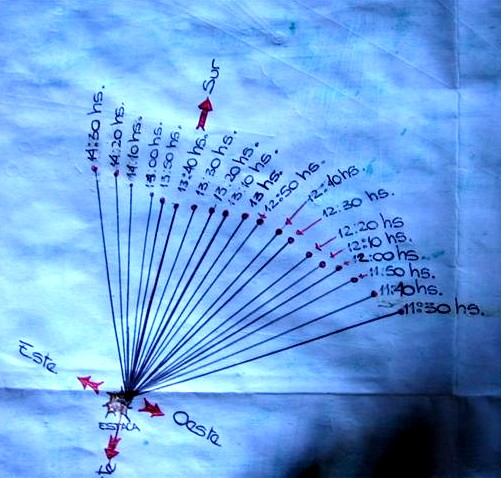 Sur
14:30 hs.
14:20 hs.
14:10 hs.
14:00 hs.
13:50 hs.
13:40 hs.
13:30 hs.
13:20 hs.
13:10 hs.
13 hs.
12:50 hs.
12:40 hs.
12:30 hs.
12:20 hs
12:10 hs.
12:00 hs.
11:50 hs.
11:40 hs.
11:30 hs.
Este
ESTACA
Oeste
te